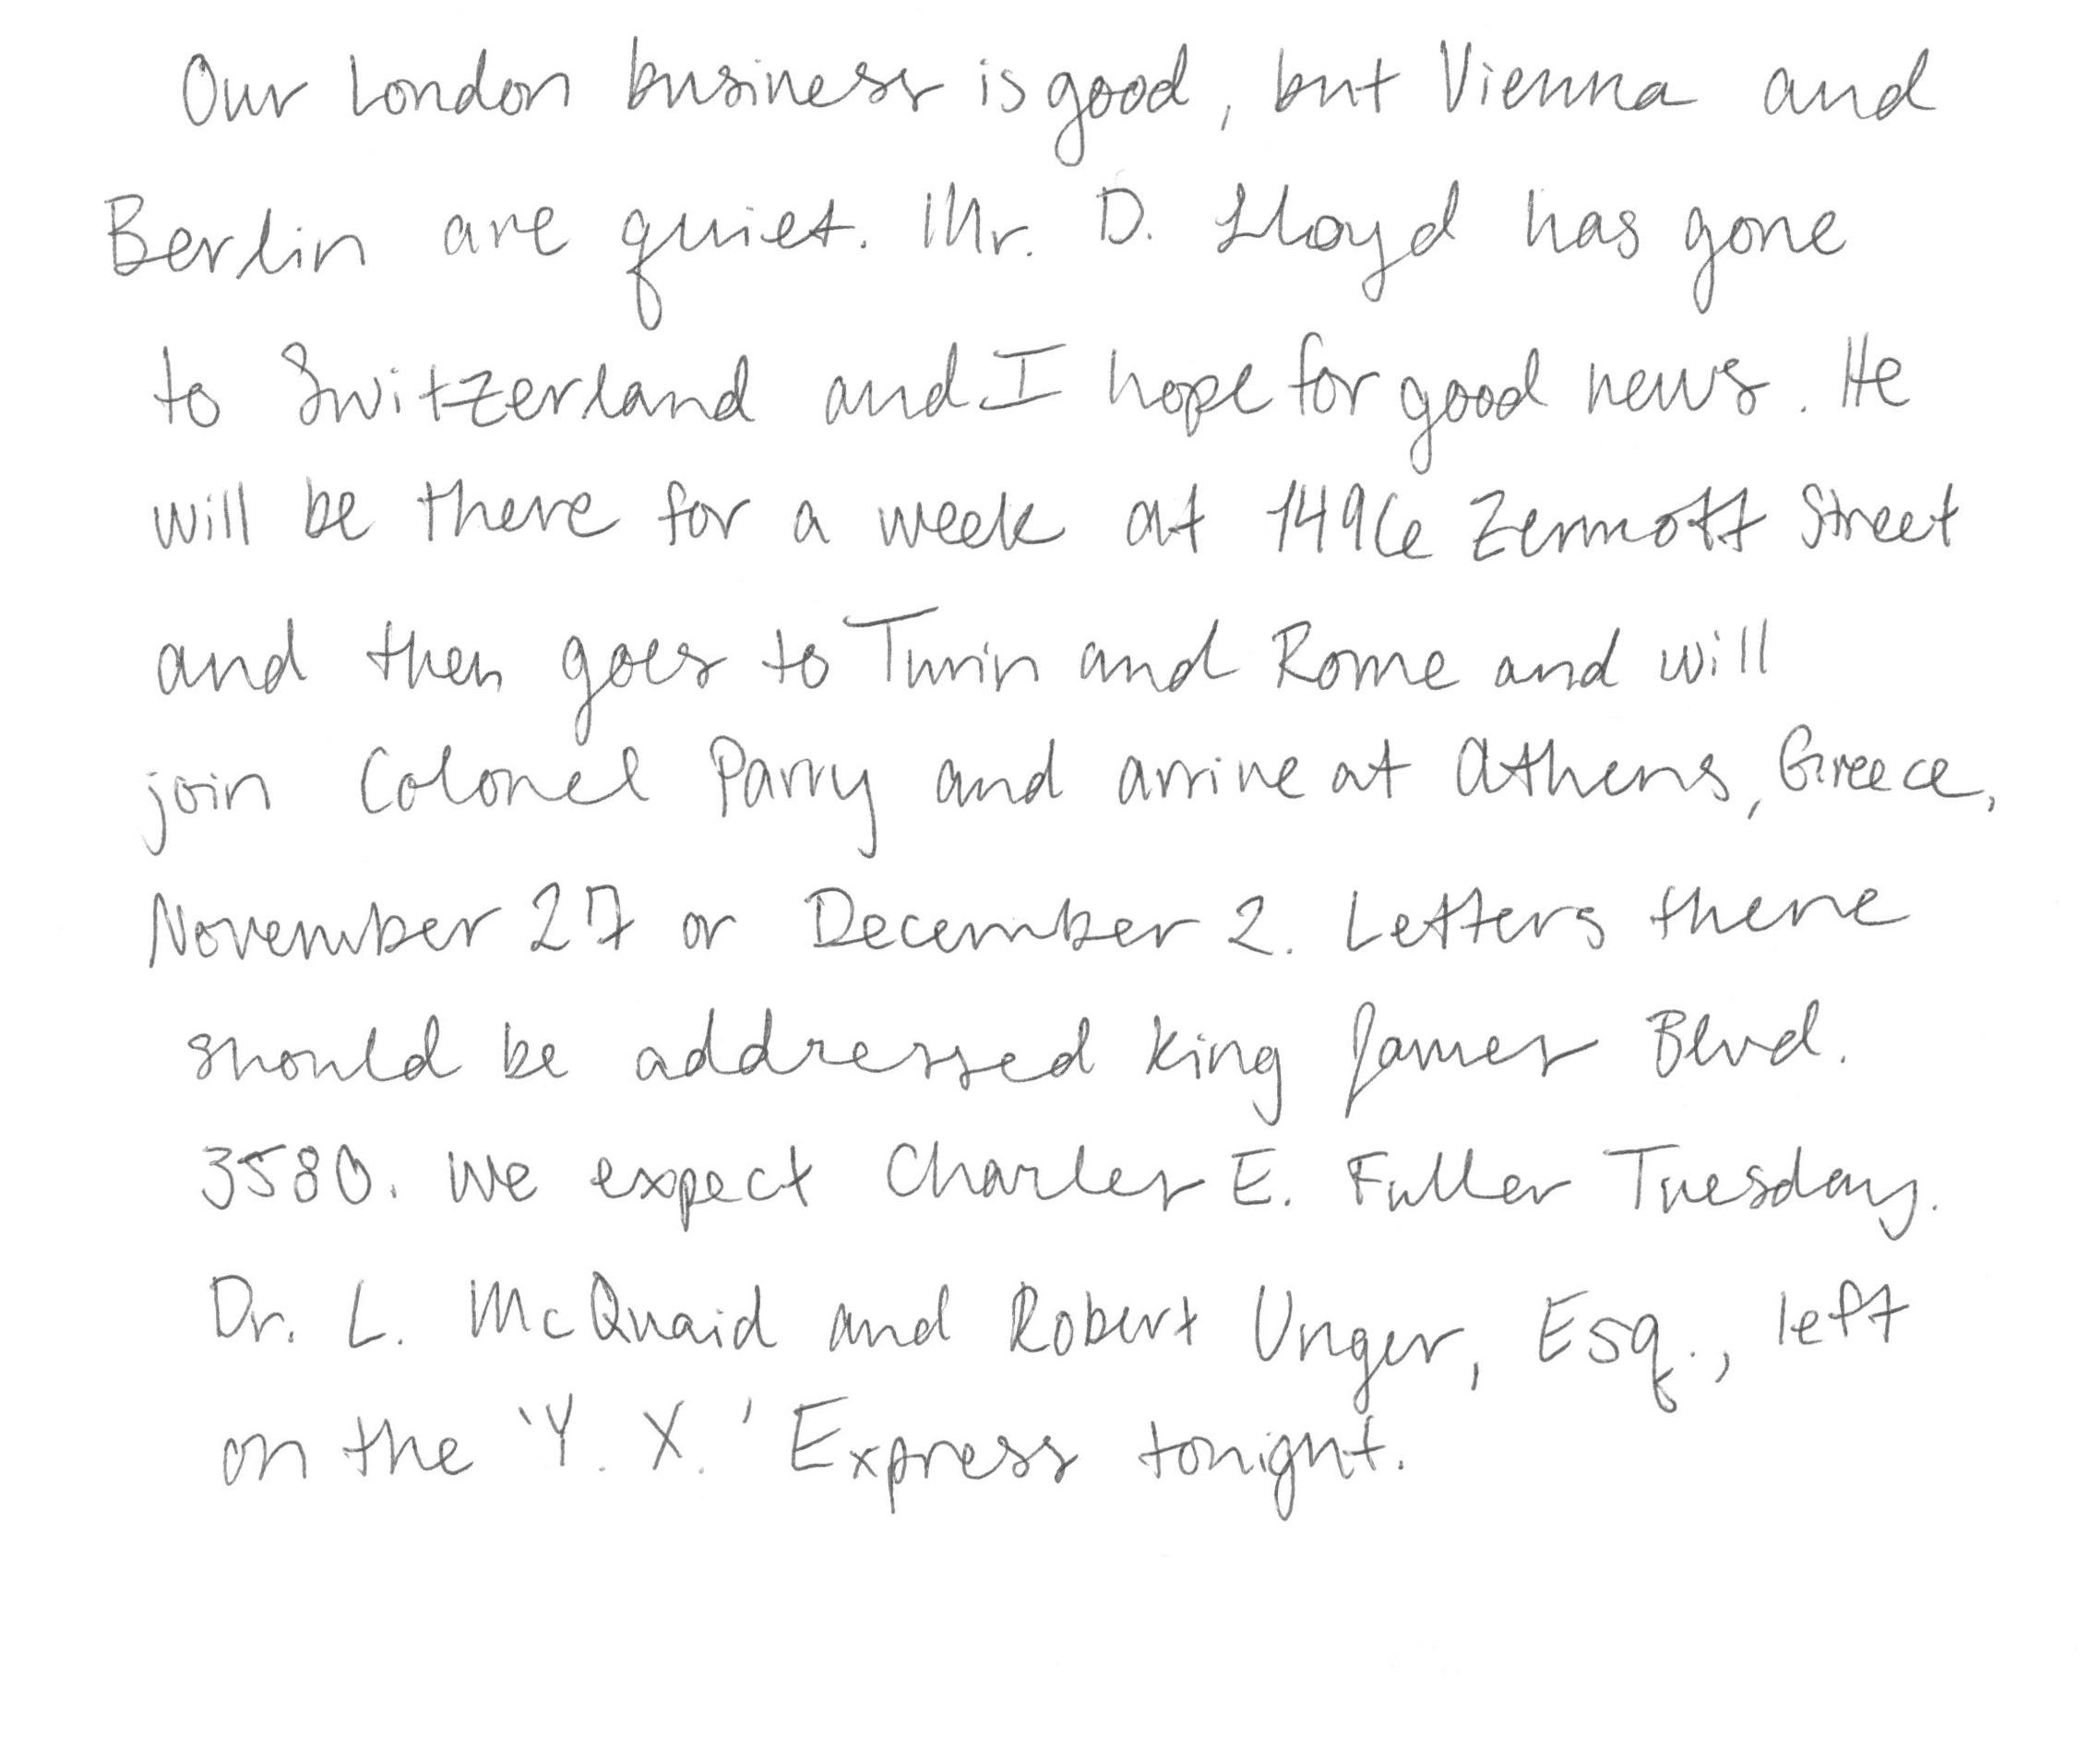 Our London business is good, but Vienna and
Berlin are quiet. Mr. D. Lloyd has gone
to Switzerland and I hope for good news. He
will be there for a week at 1496 Zermott Street
and then goes to Turin and Rome and will
join Colonel Parry and arrive at Athens, Greece,
November 27 or December 2. Letters there
should be addressed King James Blvd.
3580. We expect Charles E. Fuller Tuesday.
Dr. L. McQuaid and Robert Unger, Esq., left
on the 'Y. X.' Express tonight.